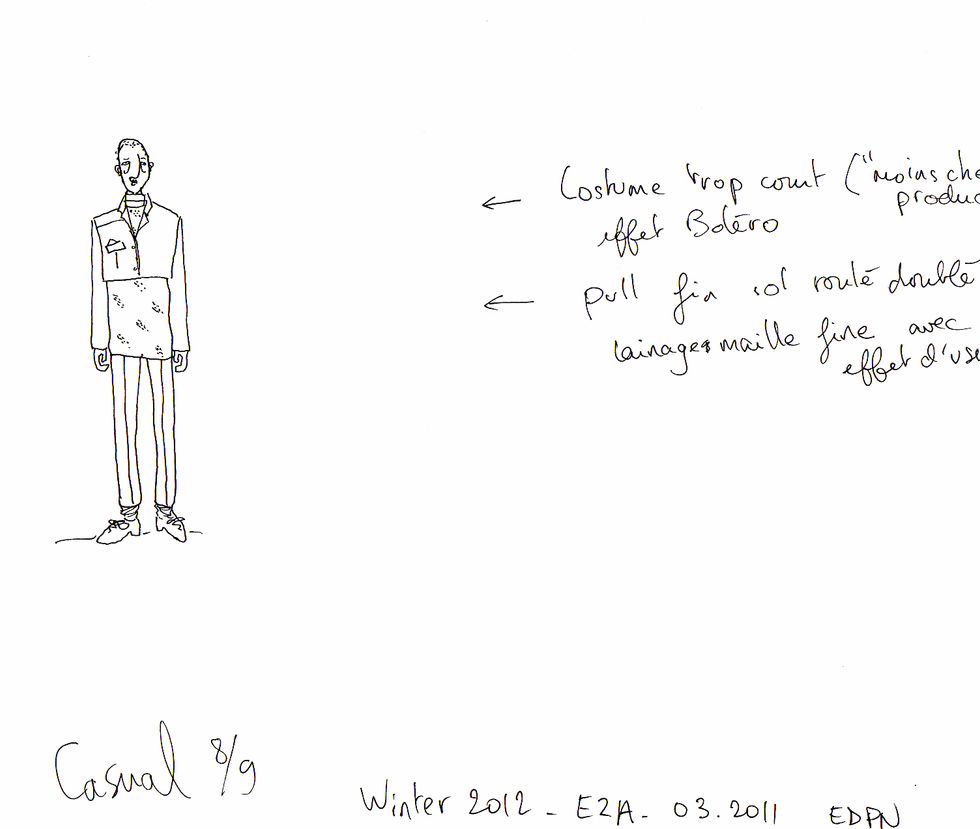 ← Costume trop court ("moins che
produc
effet Boléro
← pull fin col roulé doublé
lainages maille fine avec
effet d'use
Casual 8/9
Winter 2012 - E2A - 03.2011 EDPN